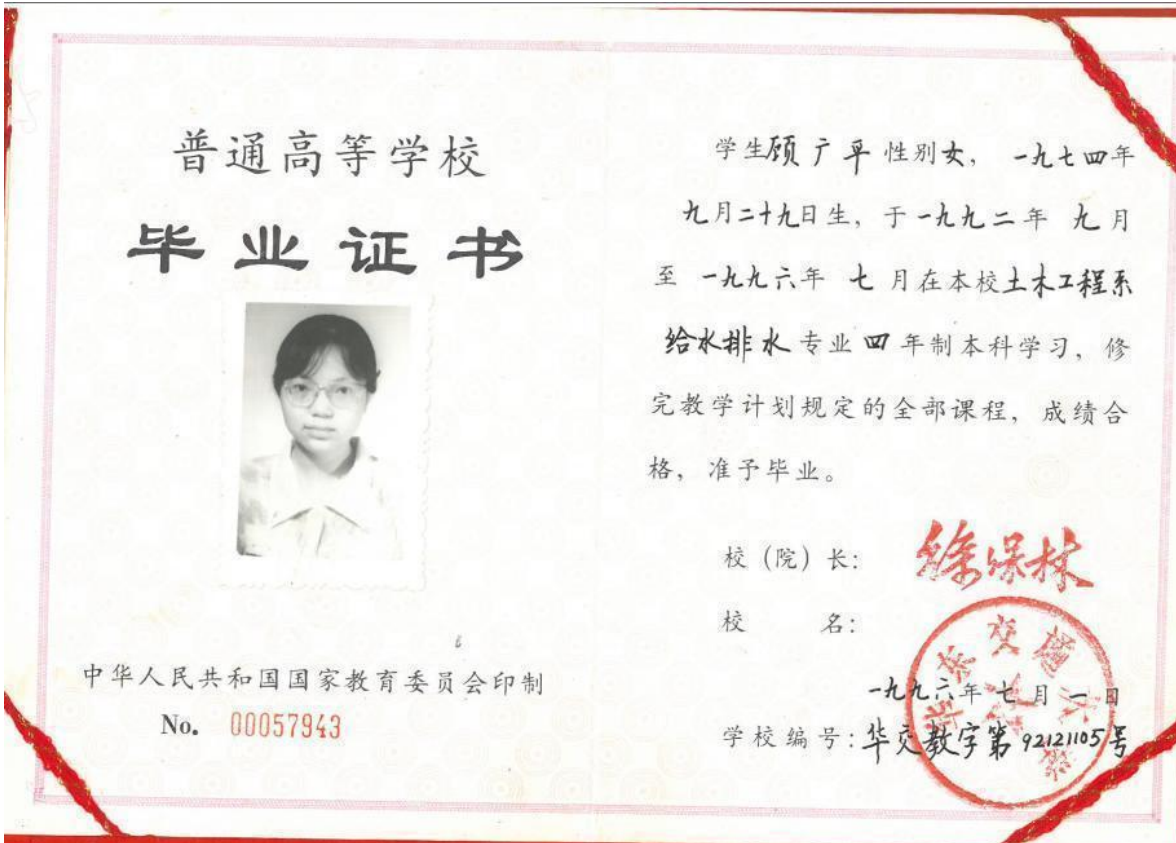 普通高等学校
毕业证书
中华人民共和国国家教育委员会印制
No. 00057943
学生顾广平性别女，一九七四年
九月二十九日生，于一九九二年 九月
至 一九九六年 七 月在本校土木工程系
给水排水专业四年制本科学习，修
完教学计划规定的全部课程，成绩合
格，准予毕业。
校（院）长：徐保林
校 名：
华东交通大学
一九九六年七月一日
学校编号：华交教字第92121105号